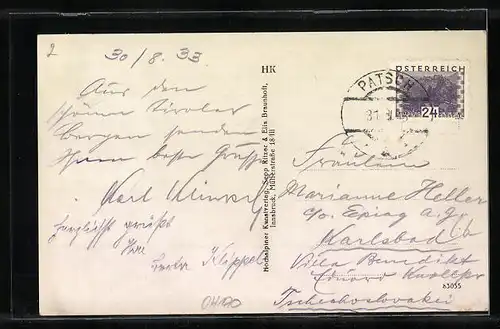 2
30/8. 33
Aus den
schönen Tiroler
Bergen senden
Ihnen beste Grüsse
Karl
herzlichst grüsst
Ihre
Klappel
HK
Hochalpiner Kunstverlag, Sepp Ritzer & Elis Braunhoff,
Innsbruck, Müllerstraße 18/III
ÖSTERREICH
24
PATSCH
31
Fräulein
Marianne Heller
c/o Epiag A.G.
Karlsbad
Villa Benedikt
Eduard Knoll
Tschechoslovakei
63055